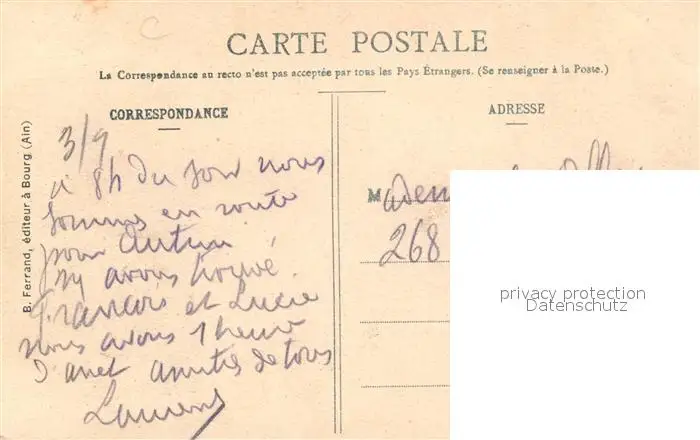 CARTE POSTALE
La Correspondance au recto n'est pas acceptée par tous les Pays Étrangers. (Se renseigner à la Poste.)
CORRESPONDANCE
ADRESSE
B. Ferrand, éditeur à Bourg (Ain)
3/9
à 8h du soir nous
sommes en route
pour Autun
j'y avons trouvé
François et Lucie
nous avons 1 heure
d'arret amitiés de tous
Laurent
M
268
privacy protection
Datenschutz